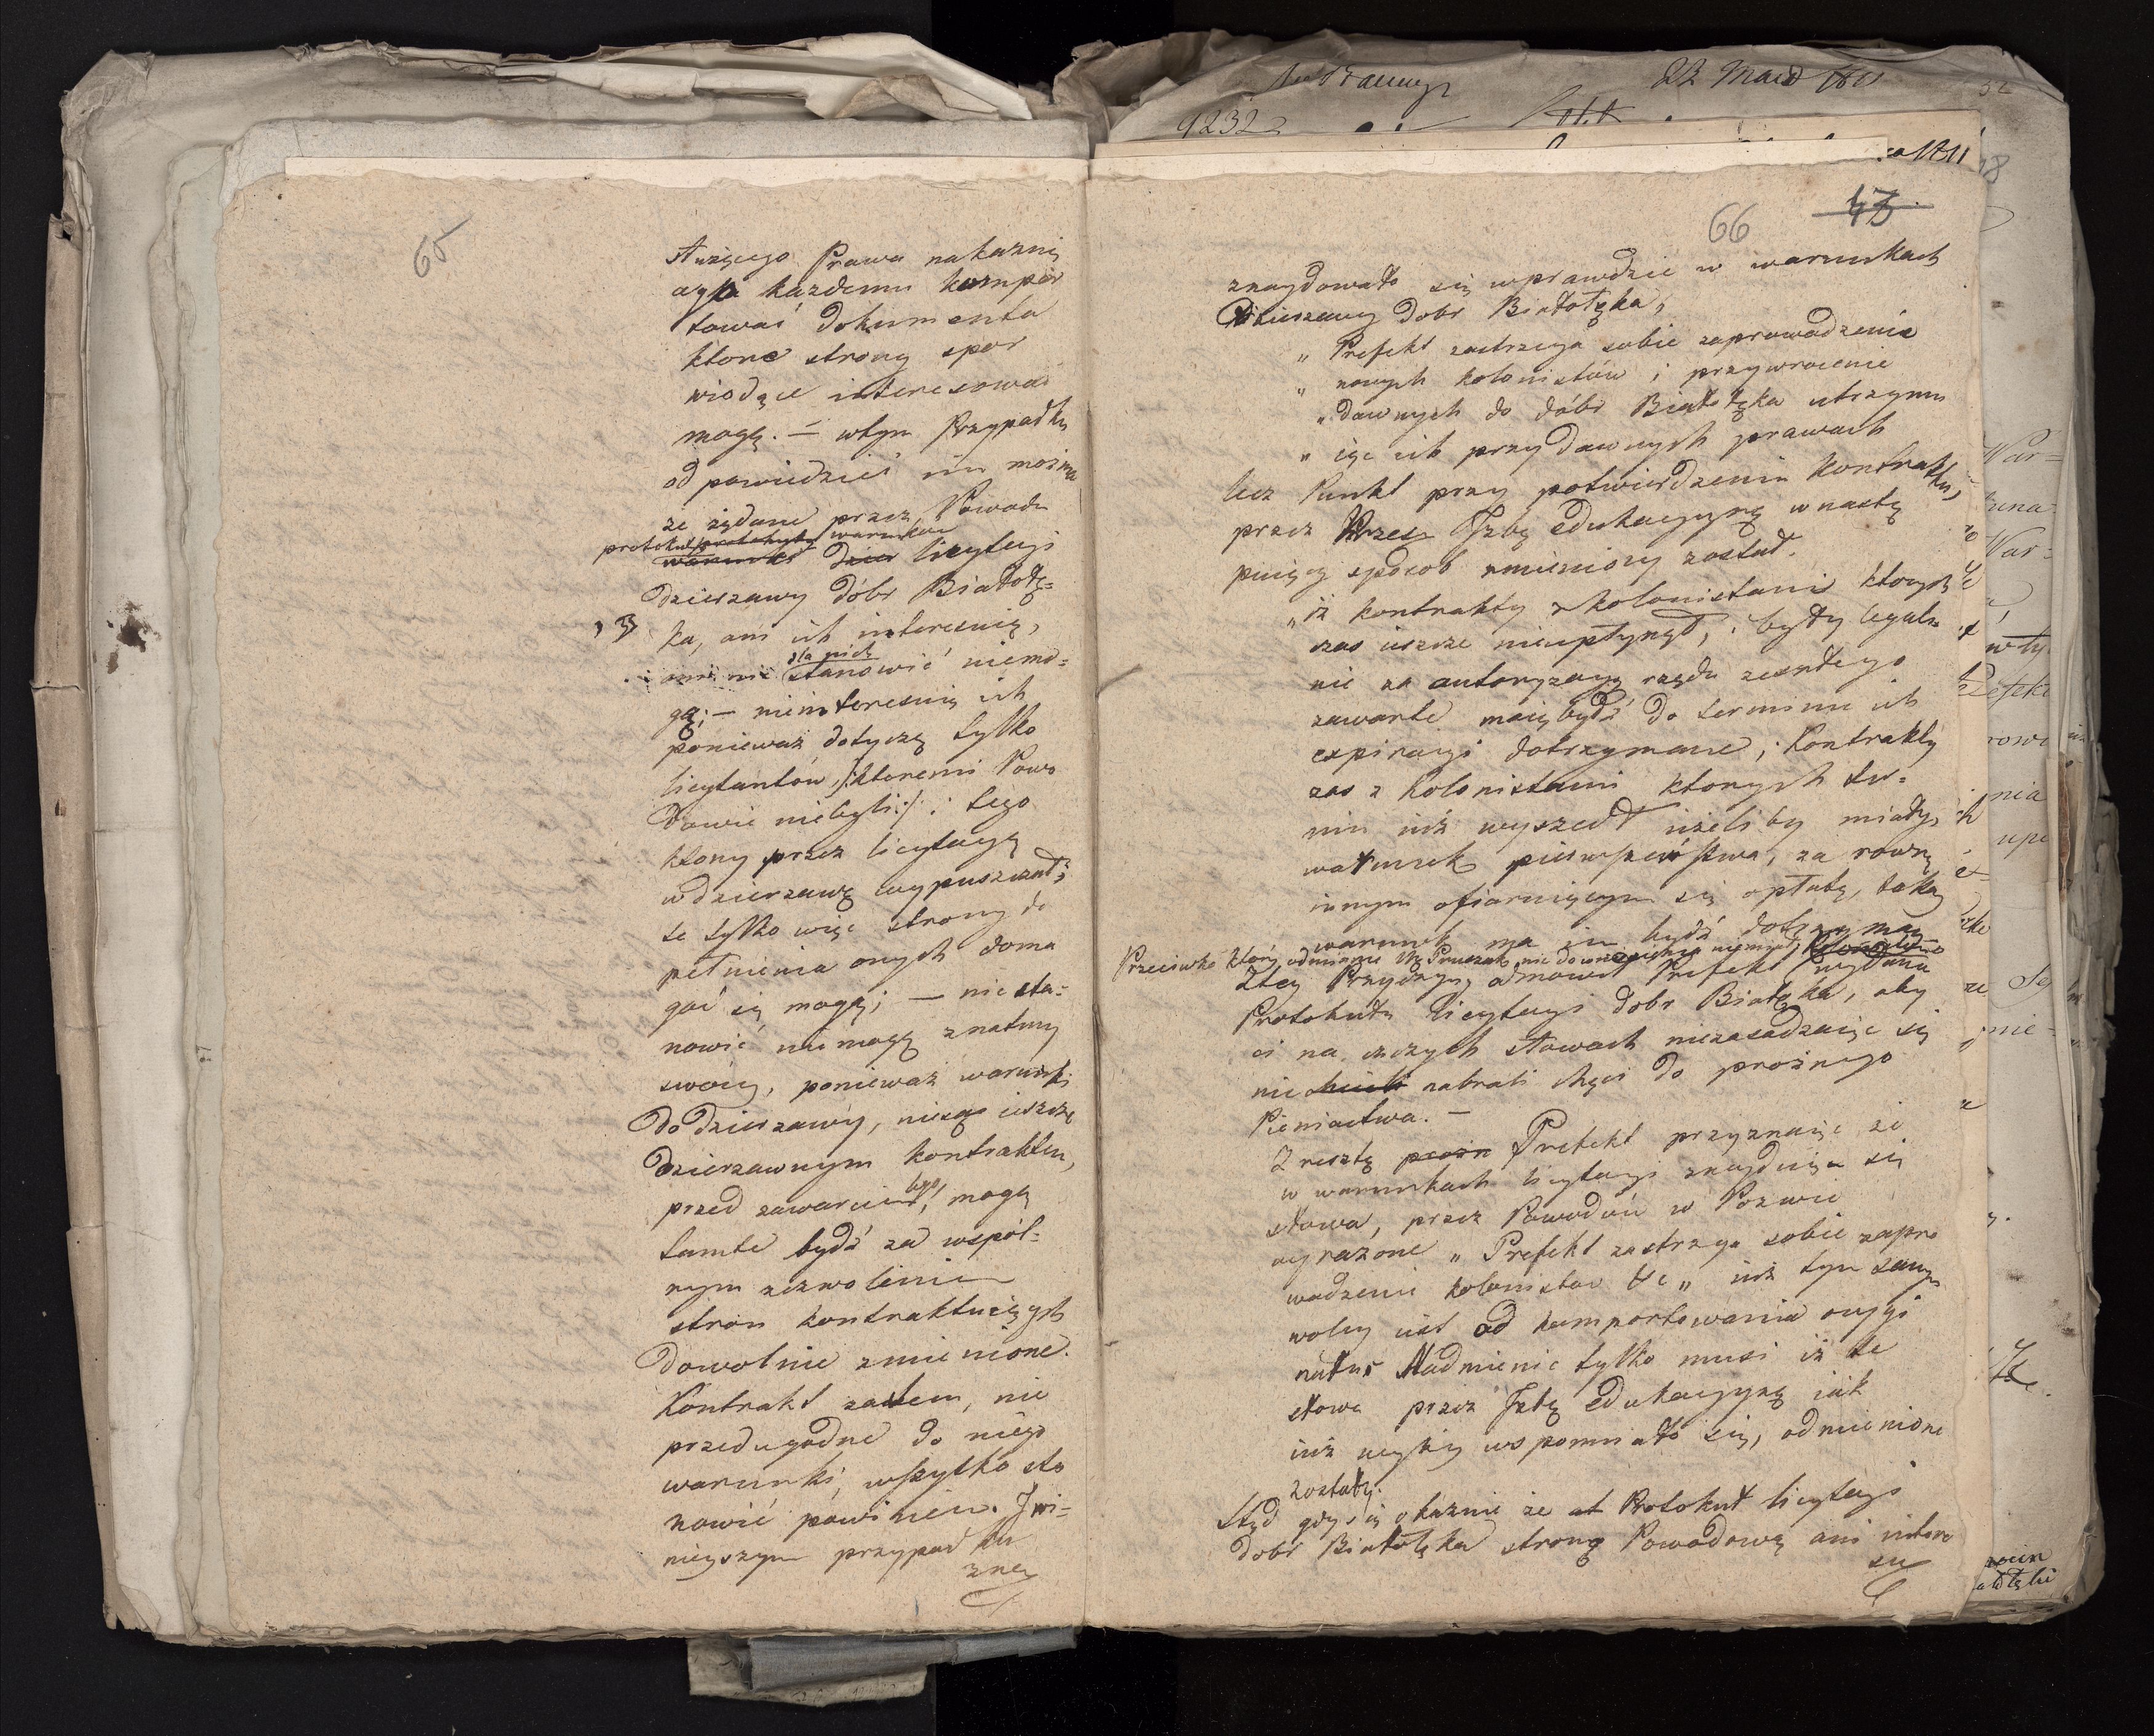 65
służącego Prawa nakazuią
ayta każdemu kompor
tować dokumenta
ktore strony spor
wiodące interesować
mogą. — w tym Przypadku
odpowiedzieć im można
że żądane przez Powodu
protokuł warunków
warunki licytacyi
dzierzawy dóbr Białołę=
ka, ani ich interesuią,
ani nic dla nich stanowić niemo=
gą; — nieinteresuią ich
ponieważ dotyczą tylko
licytantów /: ktoremi Powo
dowie niebyli :/ i tego
ktory przez licytacyą
w dzierzawę wypuszczał;
te tylko więc strony do
pełnienia onych doma
gać się mogą; — nic sta=
nowić nie mogą z natury
swoiey, ponieważ warunki
do dzierzawy, niesąc ieszcze
dzierzawnym kontraktem,
przed zawarciem tego, mogą
tamte bydź za wspól=
nym zezwoleniem
stron kontraktuiących
dowolnie zmienione.
Kontrakt zatem, nie
przedugodne do niego
warunki, wszytko sta
nowić powinien. J wni=
nieyszym przypadku
znay
66
43
znaydowało się wprawdzie w warunkach
Dzierzawy Dobr Białołęka,
„ Prefekt zastrzega sobie zaprowadzenie
„ nowych kolonistów i przywrocenie
„ dawnych do dóbr Białołęka utrzymu
„ iąc ich przy dawnych prawach
lecz Punkt przy potwierdzeniu kontraktu,
przez Jzbę Edukacyyną w nastę
puiący sposob zmieniony został.
„ iż kontrakty z kolonistami ktorych
czas ieszcze nieupłynął, i były legal
nie za autoryzacyą rządu zeszłego
zawarte maią bydź do terminu ich
expiracyi dotrzymane; Kontrakty
zas z kolonistami ktorych ter=
min iuż wyszedł ieżeliby miały
warunek pierwszeństwa, za rowną
innym ofiaruiącym się opłatą, taki
warunek ma im bydź dotrzymany
Przeciwko ktory odmianie
Ztey Przyczyny odmowił Prefekt wydania
Protokułu licytacyi dobr Białęka, aby
ci na czczych słowach niezasadzaiąc się
nie chcieli nabrali chęci do proźnego
Pieniactwa. —
Zresztą Prefekt przyznaiąc że
w warunkach licytacyi znayduią się
słowa, przez Powodów w Pozwie
wyrażone „ Prefekt zastrzega sobie zapro
wadzenie kolonistow &c „ iuż tym samym
wolny iest od komportowania oryyi
nału Nadmienić tylko musi iż te
słowa przez Jzbę Edukacyyną iak
iuż wyżey wspomniało się, odmienione
zostały.
Ztąd gdy się okazuie że Protokuł licytacyi
dobr Białołęka stronę Powodową ani intere
suie